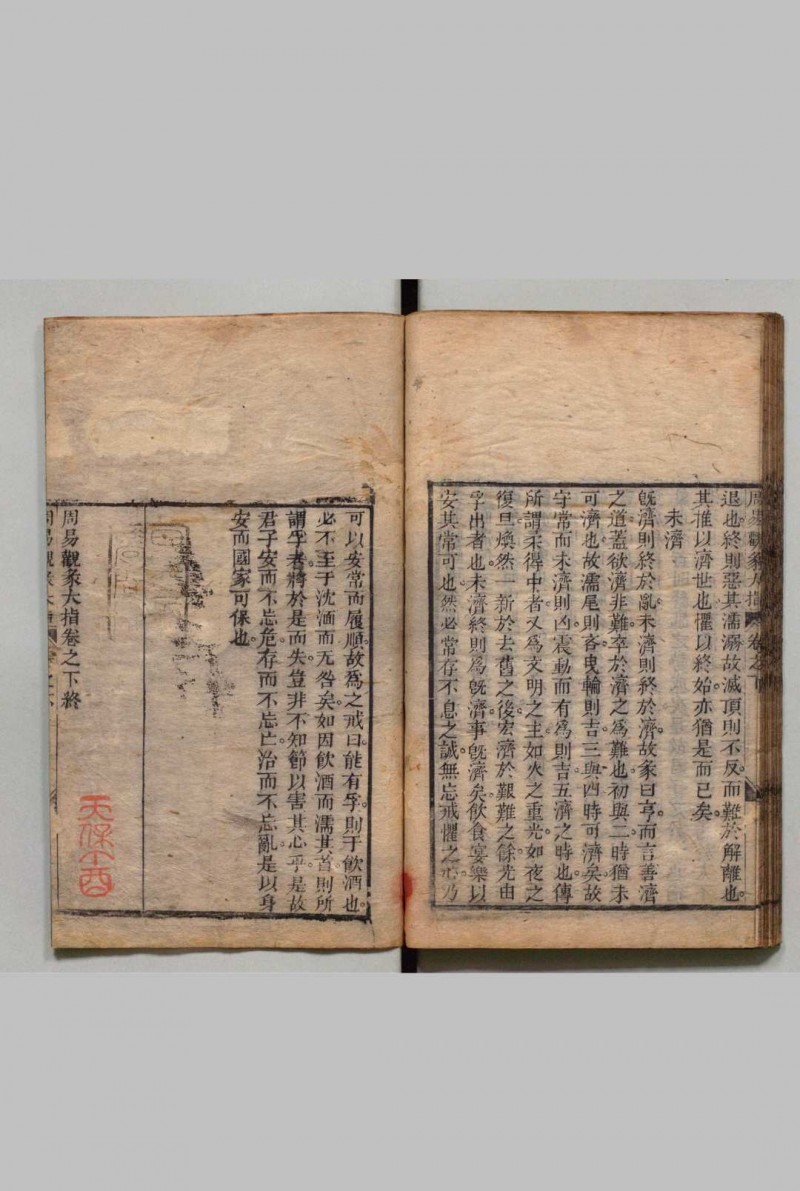 周易觀象大指 卷之下
退也終則惡其濡溺故滅頂則不反而難於解離也
其推以濟世也懼以終始亦猶是而已矣
未濟
旣濟則終於亂未濟則終於濟故彖曰亨而言善濟
之道蓋欲濟非難卒於濟之爲難也初與二時猶未
可濟也故濡尾則吝曳輪則吉三與四時可濟矣故
守常而未濟則凶震動而有爲則吉五濟之時也傳
所謂柔得中者又爲文明之主如火之重光如夜之
復旦煥然一新於去舊之後宏濟於艱難之餘光由
孚出者也未濟終則爲旣濟事旣濟矣飲食宴樂以
安其常可也然必常存不息之誠無忘戒懼之心乃
可以安常而履順故爲之戒曰能有孚則于飲酒也
必不至于沈湎而无咎矣如因飲酒而濡其首則所
謂孚者將於是而失豈非不知節以害其心乎是故
君子安而不忘危存而不忘亡治而不忘亂是以身
安而國家可保也
周易觀彖大指卷之下終
天保 酉